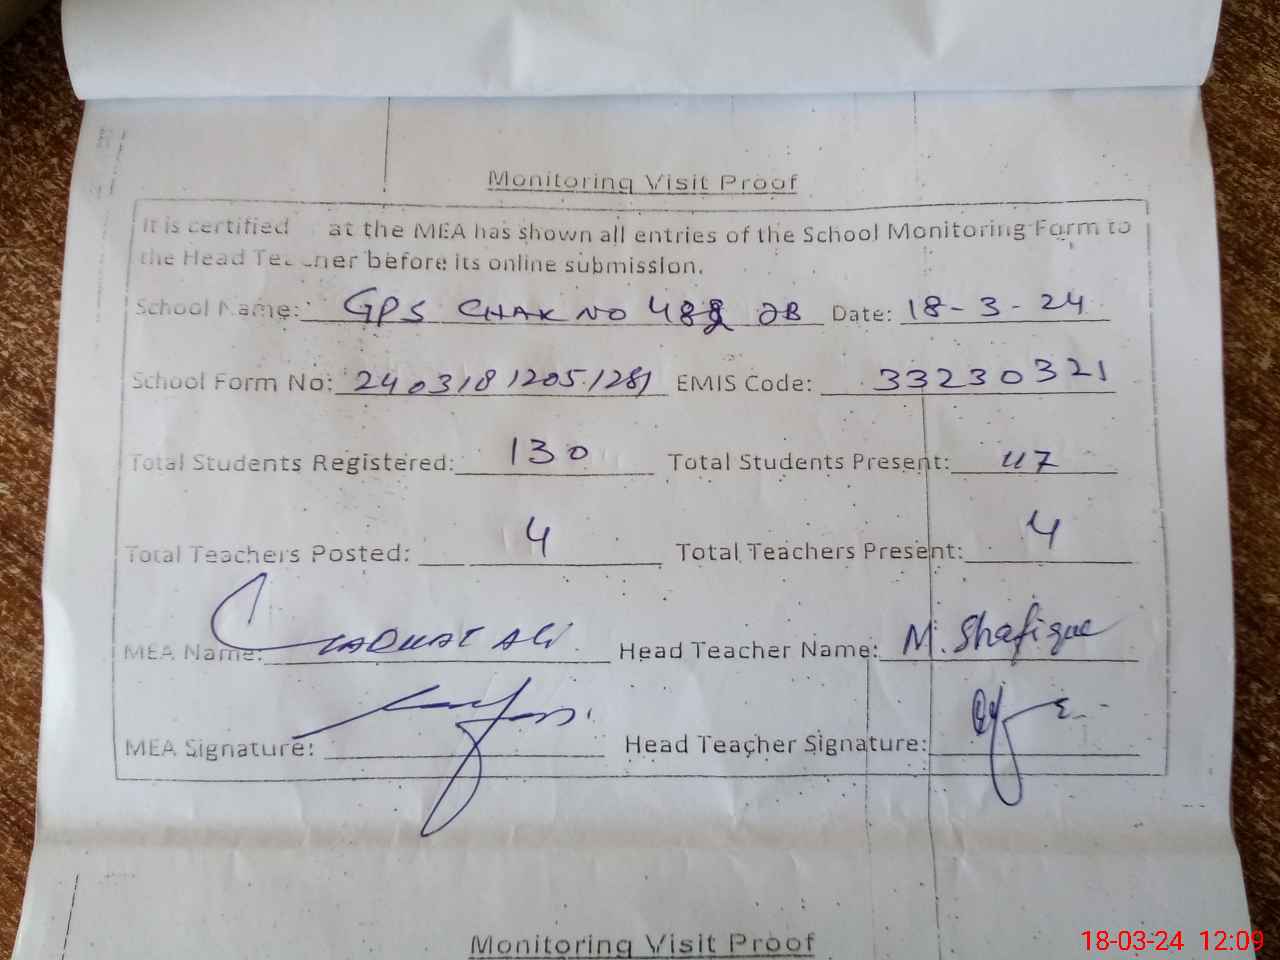 Monitoring Visit Proof
It is certified at the MEA has shown all entries of the School Monitoring Form to
the Head Te ner before its online submission.
School Name: GPS CHAK NO 488 JB Date: 18-3-24
School Form No: 24031812051281 EMIS Code: 33230321
Total Students Registered: 130 Total Students Present: 47
Total Teachers Posted: 4 Total Teachers Present: 4
MEA Name: ALI Head Teacher Name: M. Shafique
MEA Signature: Head Teacher Signature:
Monitoring Visit Proof
18-03-24 12:09